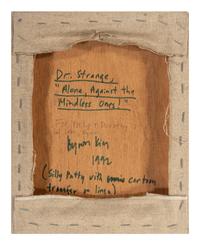 Dr. Strange,
"Alone, Against the
Mindless Ones!"
For
Byron Kim
1992
(Silly Putty with comic cartoon
transfer on linen)